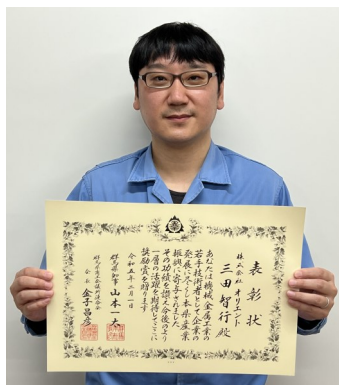 表彰状
株式会社 オリエント
三田智行殿
あなたは機械金属工業の
若手技術者として企業の
発展に尽くし本県産業
振興に寄与されました
その功績を讃え今後のより
一層の活躍を期待してここに
奨励賞を贈ります
令和五年二月一日
群馬県知事 山本一太
会長 金子昌彦